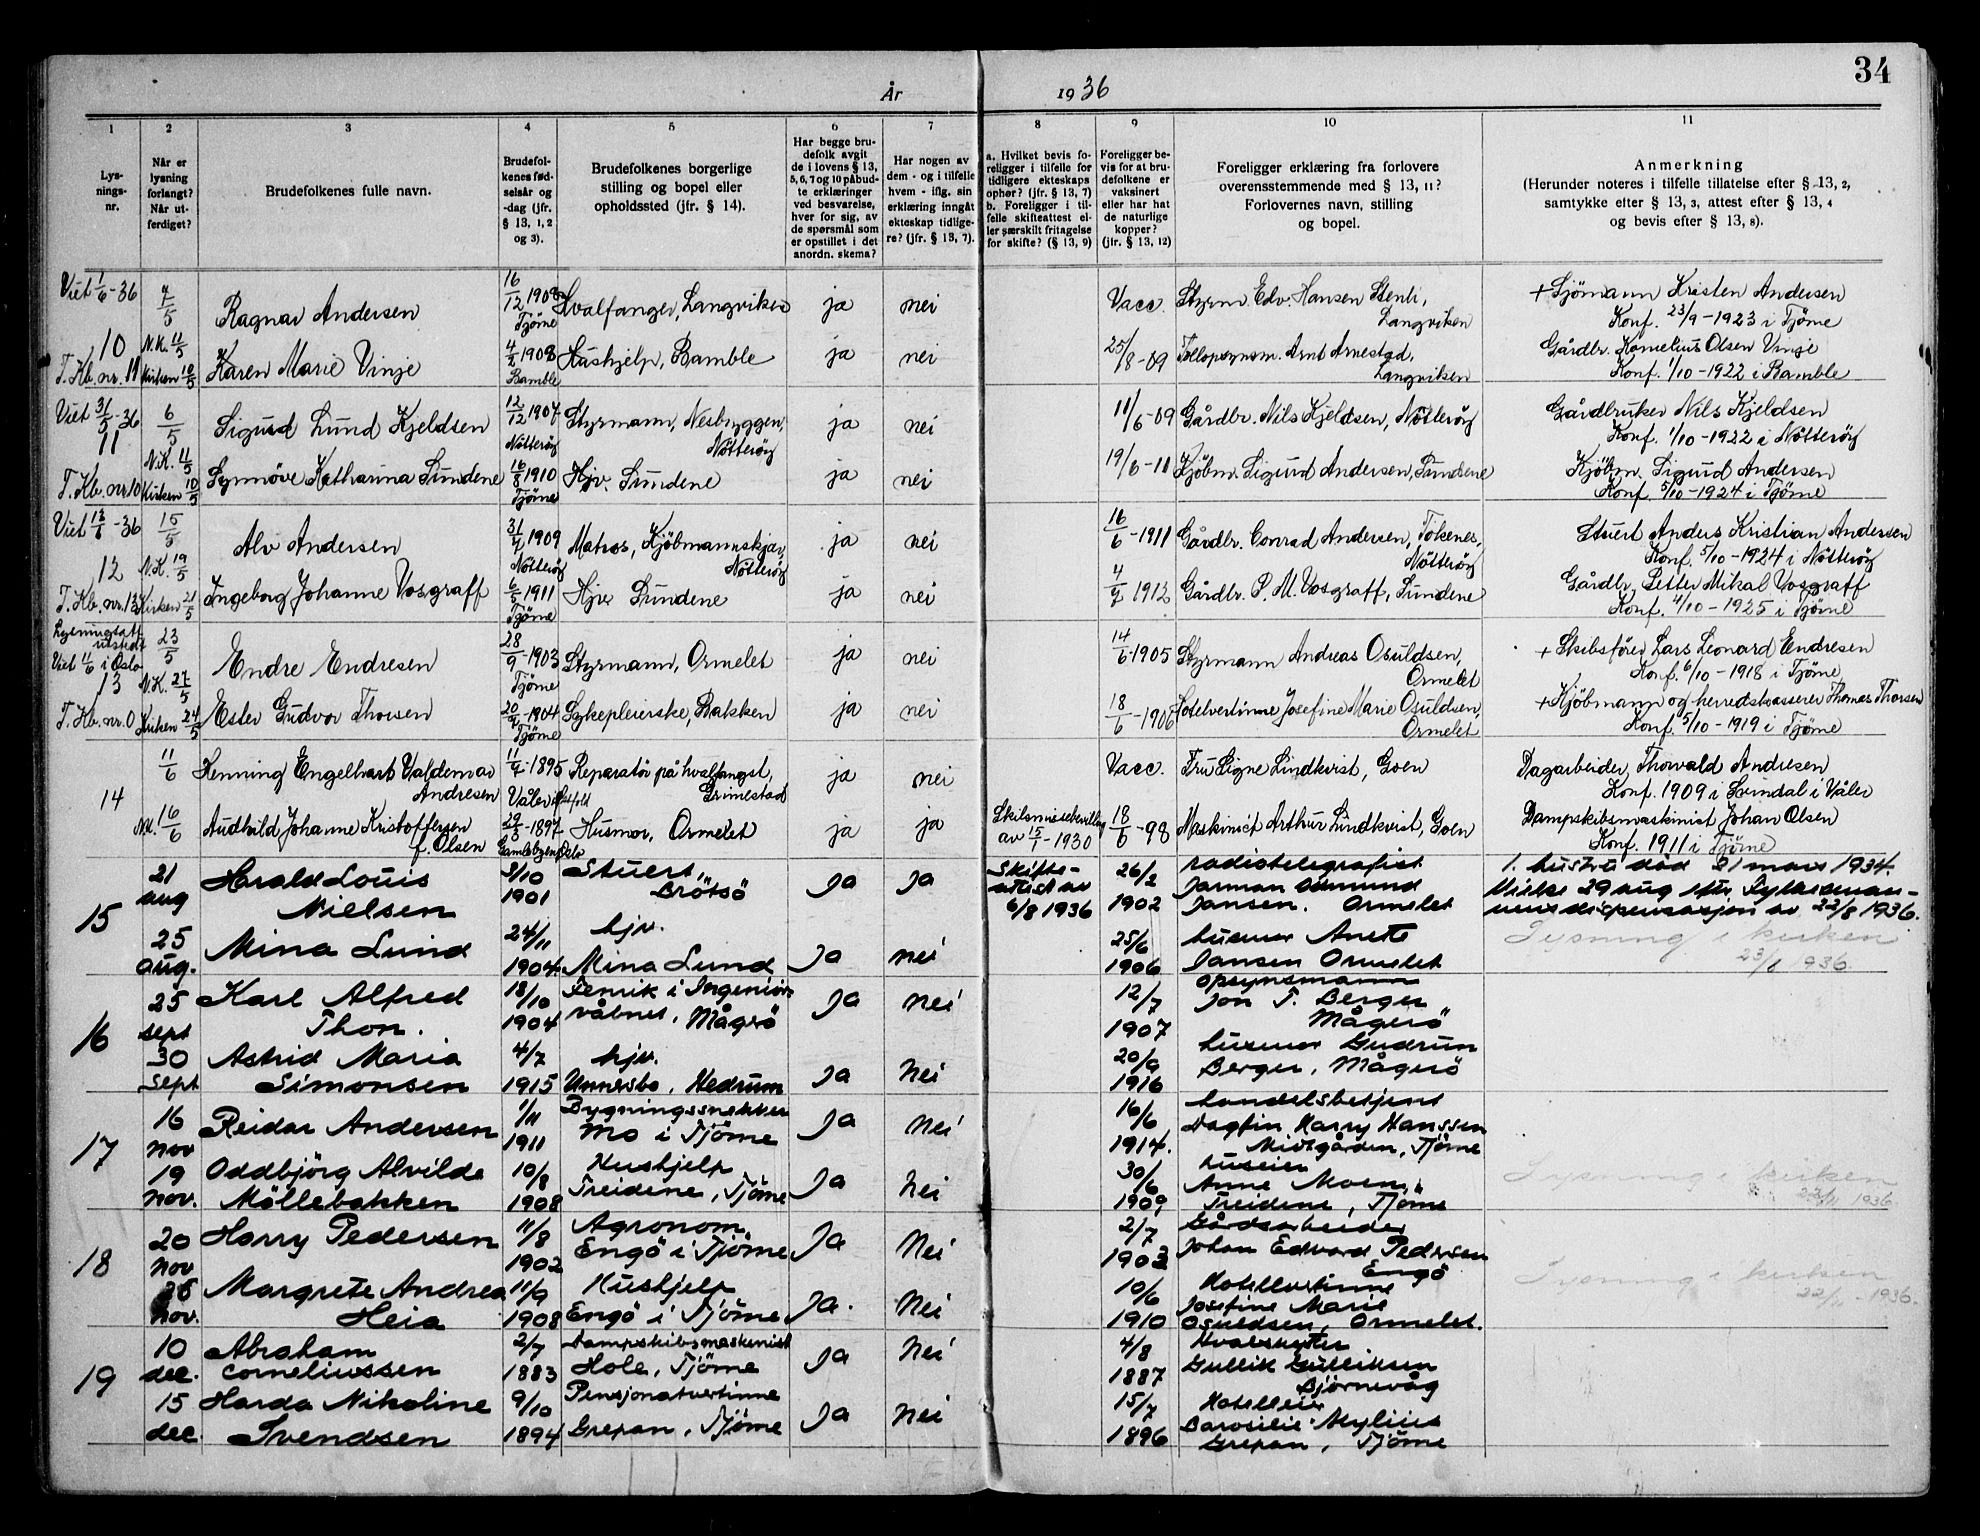 34
År 1936
1 2 3 4 5 6 7 8 9 10 11
Lys-
nings-
nr.
Når er
lysning
forlangt?
Når ut-
ferdiget?
Brudefolkenes fulle navn.
Brudefol-
kenes fød-
selsår og
-dag (jfr.
§ 13, 1, 2
og 3).
Brudefolkenes borgerlige
stilling og bopel eller
opholdssted (jfr. § 14).
Har begge bru-
defolk avgit
de i lovens § 13,
5, 6, 7 og 10 påbud-
te erklæringer
ved besvarelse,
hver for sig, av
de spørsmål som
er opstillet i det
anordn. skema?
Har nogen av
dem - og i tilfelle
hvem - iflg. sin
erklæring inngåt
ekteskap tidlige-
re? (jfr. § 13, 7).
a. Hvilket bevis fo-
religger i tilfelle for
tidligere ekteskaps
ophør? (jfr. § 13, 7)
b. Foreligger i til-
felle skifteattest el-
ler særskilt fritagelse
for skifte? (§ 13, 9)
Foreligger be-
vis for at bru-
defolkene er
vaksinert
eller har hat
de naturlige
kopper?
(jfr. § 13, 12)
Foreligger erklæring fra forlovere
overensstemmende med § 13, 11?
Forlovernes navn, stilling
og bopel.
Anmerkning
(Herunder noteres i tilfelle tillatelse efter § 13, 2,
samtykke efter § 13, 3, attest efter § 13, 4
og bevis efter § 13, 8).
Viet 1/6-36
10
T. Kb. nr. 11
7/5
N.K. 11/5
Kirken 10/5
Ragnar Andersen 16/12 1908 Tjøme Hvalfanger, Langviken ja nei Vacc. Styrm. Edv. Hansen Stenli,
Langviken
+ Sjömann Kristen Andersen
Konf. 23/9-1923 i Tjøme
Karen Marie Vinje 4/2 1908 Bamble Hushjelp, Bamble ja nei 25/8-09 Arnt Arnestad,
Langviken
Gårdbr. Kornelius Olsen Vinje
Konf. 1/10-1922 i Bamble
Viet 31/5-36
11
T. Kb. nr. 10
6/5
N.K. 11/5
Kirken 10/5
Sigurd Lund Kjeldsen 12/12 1907 Nötteröy Styrmann, Nesbryggen,
Nötteröy
ja nei 11/6-09 Gårdbr. Nils Kjeldsen, Nötteröy
Gårdbruker Nils Kjeldsen
Konf. 1/10-1922 i Nötteröy
Synnöve Katharina Sundene 16/8 1910 Tjøme Hjv. Sundene ja nei 19/6-11 Kjöbm. Sigurd Andersen, Sundene
Kjöbm. Sigurd Andersen
Konf. 5/10-1924 i Tjøme
Viet 13/6-36
12
T. Kb. nr. 13
15/5
N.K. 19/5
Kirken 21/5
Alv Andersen 31/7 1909 Nötteröy Matros, Kjöbmannskjær,
Nötteröy
ja nei 16/6-1911 Gårdbr. Conrad Andersen, Tokenes,
Nötteröy
Stuert Anders Kristian Andersen
Konf. 5/10-1924 i Nötteröy
Ingeborg Johanne Vosgraff 6/5 1911 Tjøme Hjv. Sundene ja nei 4/7 1912 Gårdbr. P. M. Vosgraff, Sundene
Gårdbr. Petter Mikal Vosgraff
Konf. 4/10-1925 i Tjøme
Lysningsatt.
utstedt
Viet 11/6 i Oslo
13
T. Kb. nr. 0
23/5
N.K. 27/5
Kirken 24/5
Endre Endresen 28/9-1903 Tjøme Styrmann, Ormelet ja nei 14/6-1905 Styrmann Andreas Osuldsen,
Ormelet
+ Skibsförer Lars Leonard Endresen
Konf. 6/10-1918 i Tjøme
Ester Gudvor Thorsen 20/4-1904 Tjøme Sykepleierske, Bakken ja nei 18/6-1906 Hotelvertinne Josefine Marie Osuldsen,
Ormelet
+ Kjöbmann og herredskasserer Thomas Thorsen
Konf. 5/10-1919 i Tjøme
14
11/6
N.K. 16/6
Henning Engelhart Valdemar
Andresen
11/4-1895 Våler i Östfold Reparatör på hvalfangst,
Grimestad
ja nei Vacc. Fru Signe Lindkvist, Goen
Dagarbeider Thorvald Andresen
Konf. 1909 i Svindal i Våler
Audhild Johanne Kristoffersen
f. Olsen
29/3-1897 Gamlebyen, Oslo Husmor, Ormelet ja ja Skilsmissebevilling
av 15/1-1930
18/6-98 Maskinist Arthur Lindkvist, Goen
Dampskibsmaskinist Johan Olsen
Konf. 1911 i Tjøme
15
21
aug
Harald Louis
Nielsen
9/10
1901
Stuert,
Brötsö
Ja Ja
Skifte-
attest av
6/8 1936
26/2
1902
radiotelegrafist
Jarman Osmund
Jansen. Ormelet
1. hustru död 21 mars 1934.
Viele 29 aug efter Sysselman-
nens dispensasjon av 22/8 1936.
25
aug.
Mina Lund
24/11
1904
hjv.
Mina Lund
Ja nei
25/6
1906
husmor Anete
Jansen Ormelet
Lysning i kirken
23/8 1936.
16
25
sept
Karl Alfred
Thon.
18/10
1904
Fenrik i Ingeniör-
våbnet, Mågerö
Ja nei
12/7
1907
opsynsmann
Jon T. Berger
Mågerö
30
sept
Astrid Maria
Simonsen
4/7
1915
hjv.
Unnesbo, Hedrum
Ja nei
20/9
1916
husmor Gudrun
Berger, Mågerö
17
16
nov
Reidar Andersen
1/11
1911
Bygningssnekker
Mo i Tjöme
Ja nei
16/6
1914.
handelsbetjent
Dagfin Harry Hanssen
Midtgården, Tjöme
19
nov.
Oddbjörg Alvilde
Möllebakken
10/8
1908
Hushjelp
Treidene, Tjöme
Ja nei
30/6
1909
huseier
Anne Moen,
Treidene, Tjöme
Lysning i kirken
22/11 1936.
18
20
nov
Harry Pedersen
11/8
1902
Agronom
Engö i Tjöme
Ja Nei
2/7
1903
Gårdsarbeider
Johan Edvard Pedersen
Engö
nov.
Margrete Andrea
Heia
11/9
1908
Hushjelp
Engö i Tjöme
Ja. Nei
10/6
1910
Hotellvertinne
Josefine Marie
Osuldsen, Ormelet.
Lysning i kirken
22/11 - 1936.
19
10
dec.
Abraham
Corneliussen
2/7
1883
Dampskibsmaskinist
Hole, Tjöme
Ja Nei
4/8
1887
Hvalskytter
Gullik Gulliksen
Björnevåg
15
dec.
Harda Nikoline
Svendsen
9/10
1894
Pensjonatvertinne
Grepan, Tjöme
Ja Nei
15/7
1896
Hotelleier
Mylius
Grepan, Tjöme